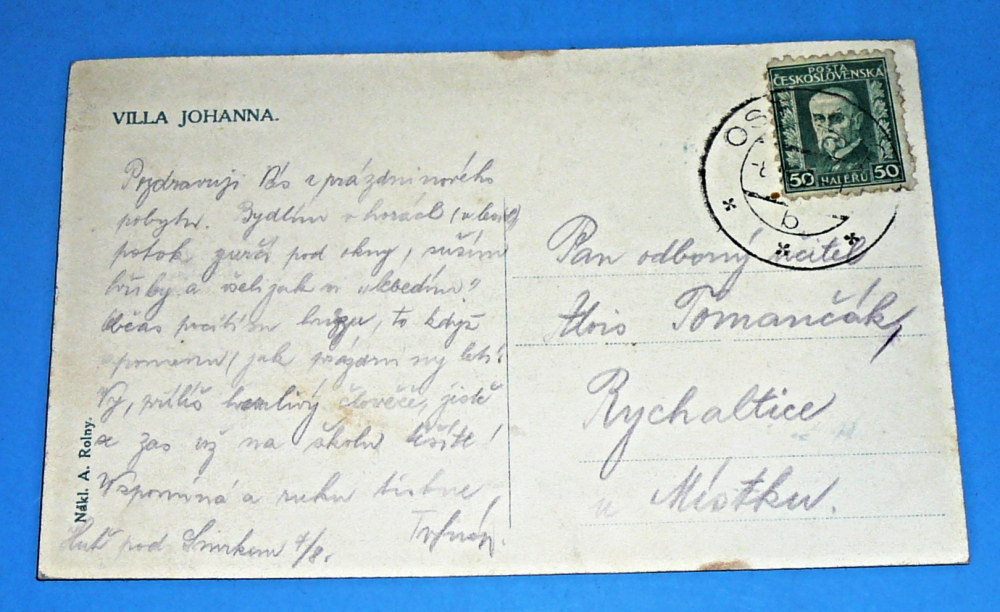 VILLA JOHANNA.
Pozdravuji Vás z prázdninového
pobytu. Bydlím v horách (v lese)
potok zurčí pod okny, suším
hřiby a všelijak si „lebedím"
Občas pocítím hrůzu, to když
vzpomenu, jak prázdniny letí!
Vy, příliš horlivý člověče, jistě
se zas už na školu těšíte!
Vzpomíná a ruku tiskne
Huť pod Smrkem 4/8.
Nákl. A. Rolny.
POŠTA
ČESKOSLOVENSKÁ
50 HALÉŘŮ 50
OS
b
Pan odborný učitel
Alois Tomančák,
Rychaltice
u Místku.